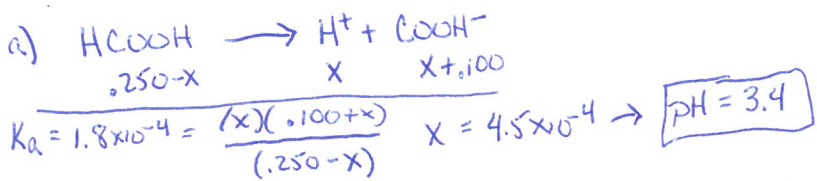 a) HCOOH → H⁺ + COOH⁻
.250-x x x+.100
Ka = 1.8x10⁻⁴ = (x)(.100+x) / (.250-x) x = 4.5x10⁻⁴ → pH = 3.4